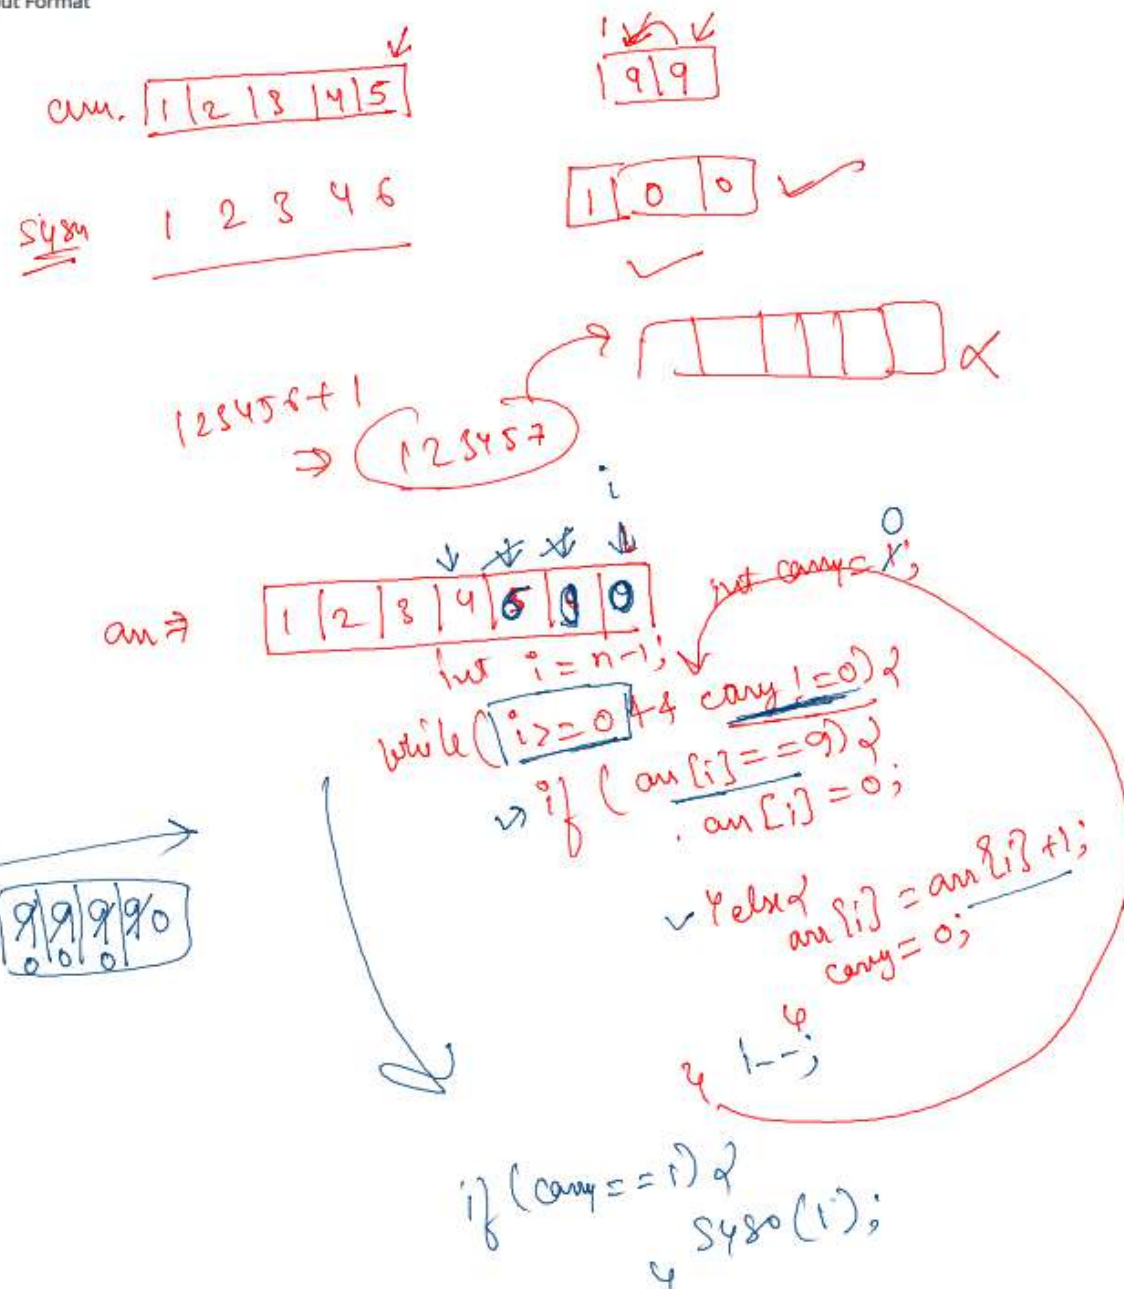 out Format
arr. 1 2 3 4 5
1
9 9
syso 1 2 3 4 6
1 0 0
123456+1
⇒ 123457
i
0
int carry = 1;
arr ⇒ 1 2 3 4 6 0 0
int i = n-1;
while( i>=0 && carry !=0) {
if ( arr[i]==9) {
arr[i] = 0;
} else {
arr[i] = arr[i] +1;
carry = 0;
}
9 9 9 9 0
0 0 0
i--;
}
if (carry == 1) {
syso (1);
}